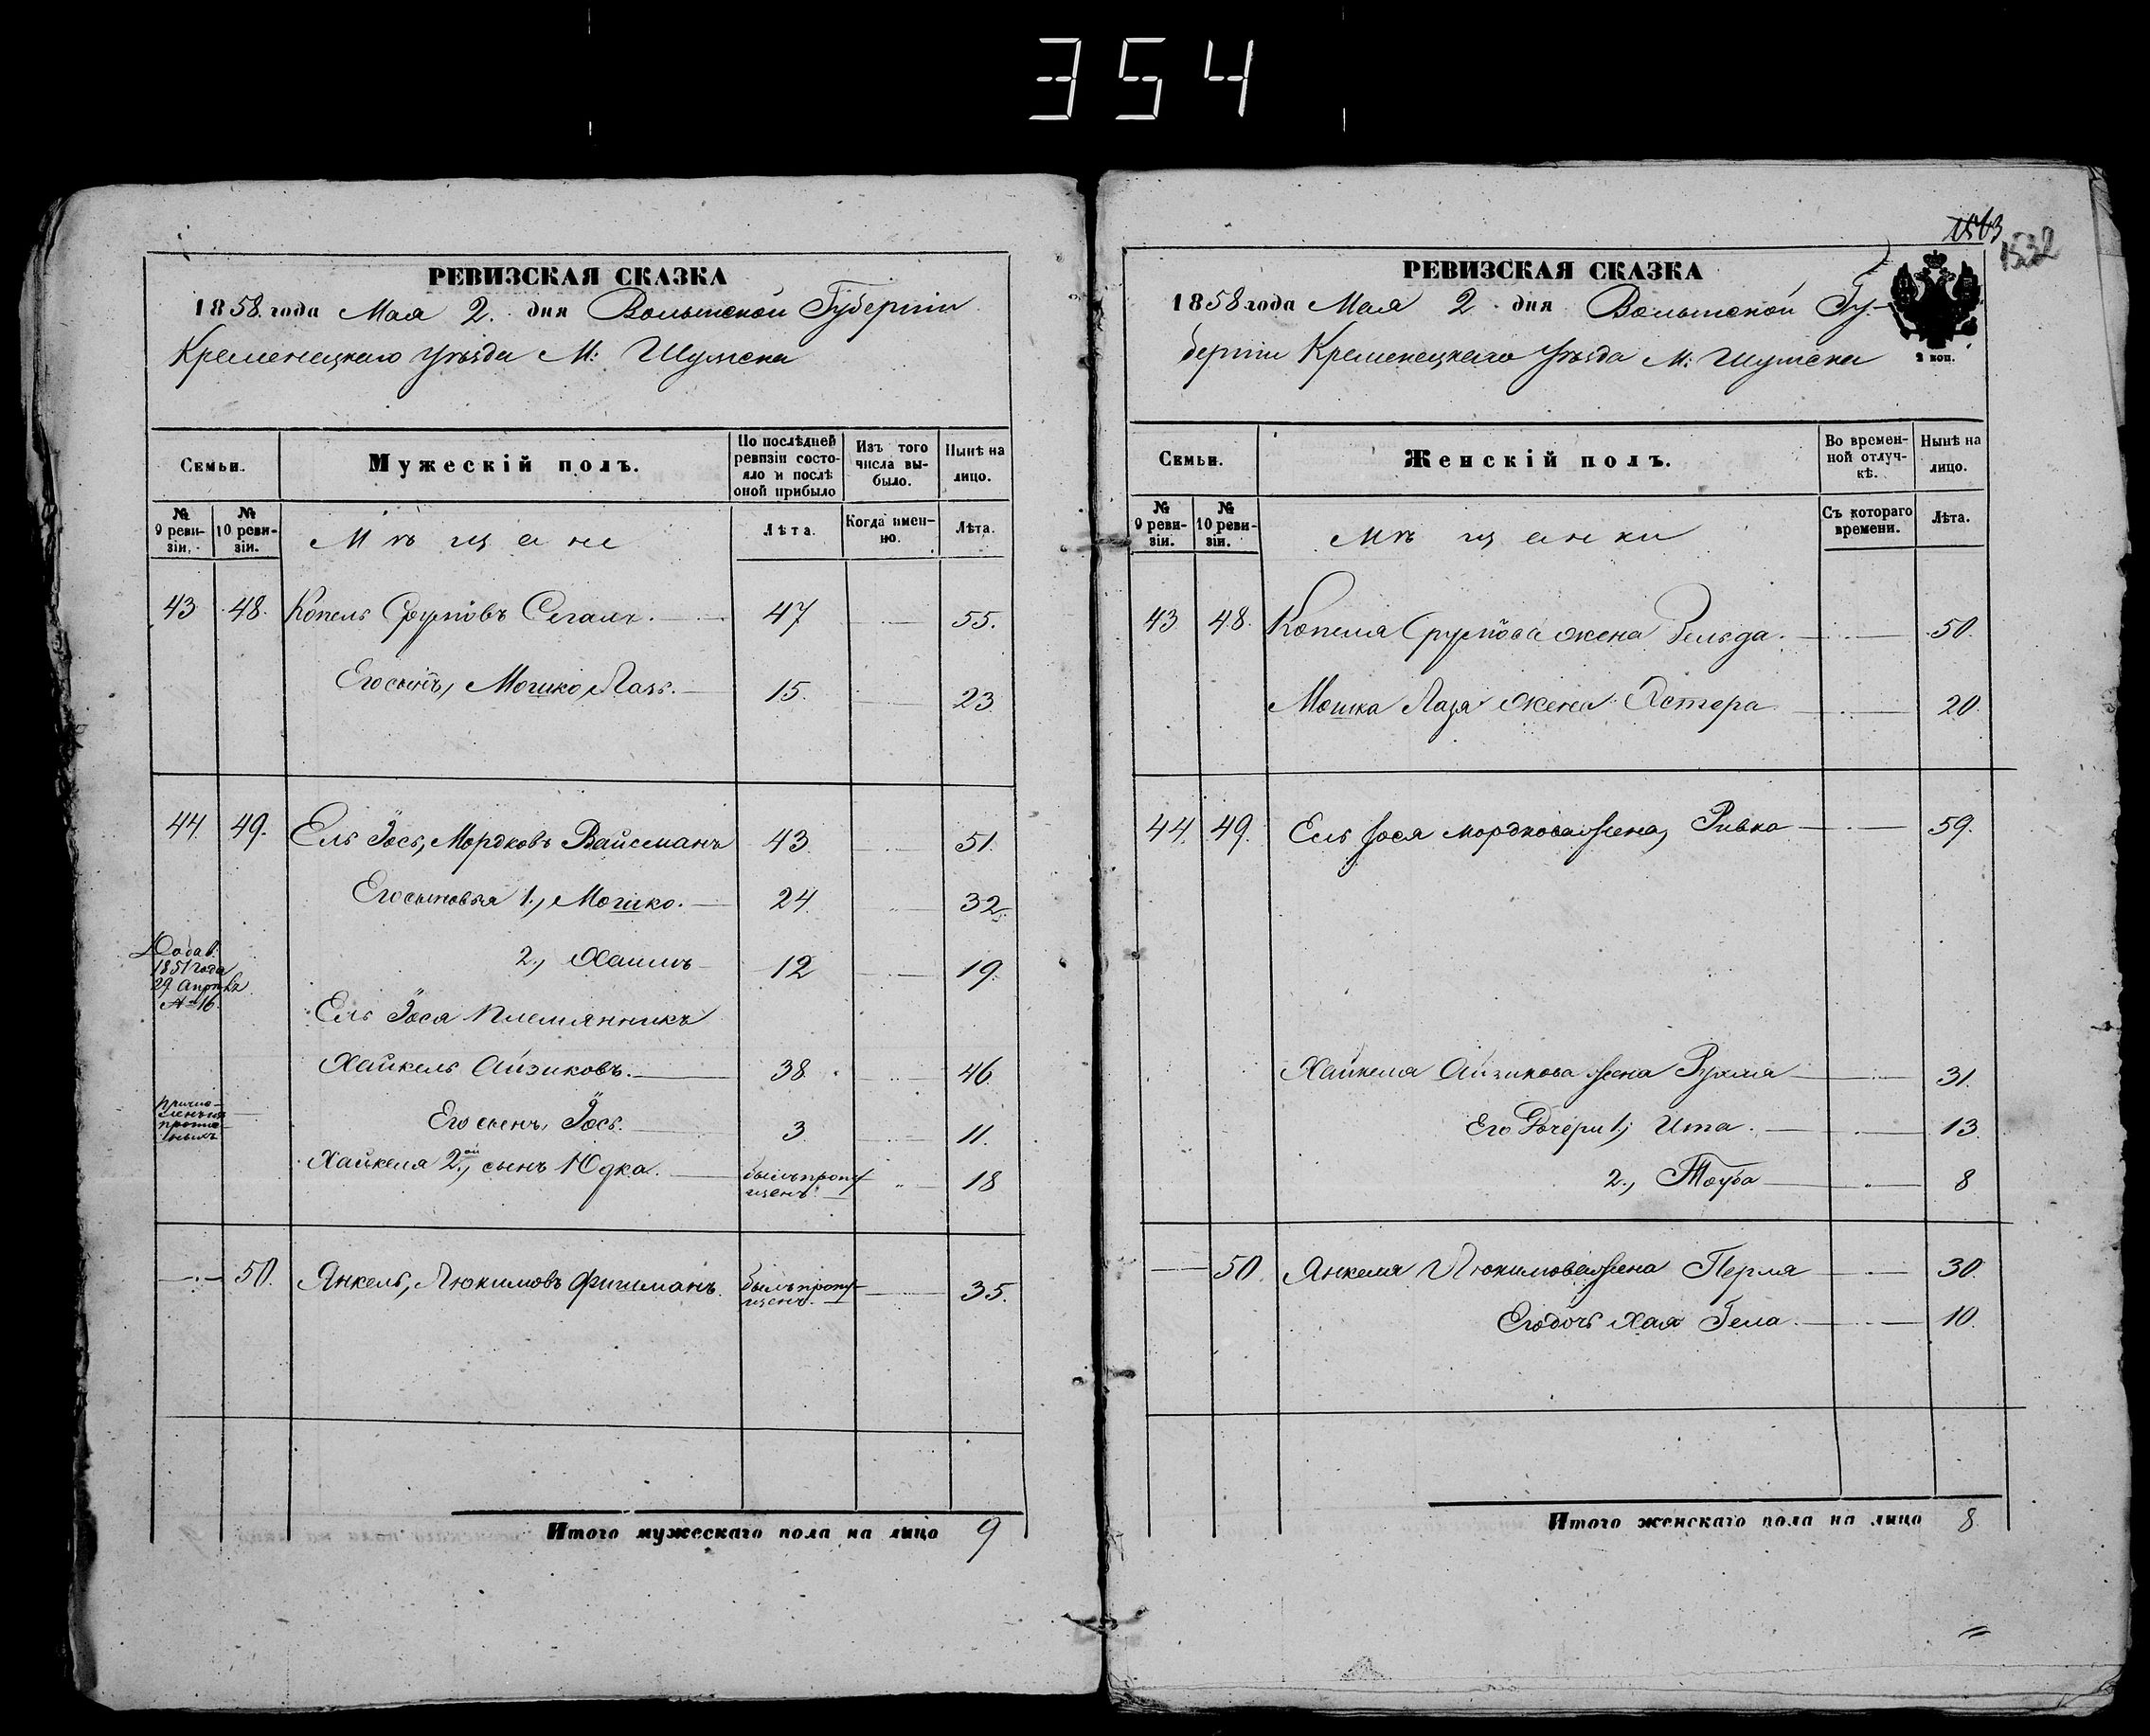 354
РЕВИЗСКАЯ СКАЗКА
1858. года Мая 2. дня Волынской Губерніи
Кременецкаго уѣзда М: Шумска
Семьи.
Мужескій полъ.
По послѣдней ревизіи состояло и послѣ оной прибыло
Изъ того числа выбыло.
Нынѣ на лицо.
№ 9 ревизіи.
№ 10 ревизіи.
Мѣщане
Лѣта.
Когда именно.
Лѣта.
43 48. Копель Сруловъ Сегалъ. 47 55.
Его сынъ, Мошко Лазь. 15. 23.
44. 49. Ель Іось, Мордковъ Вайсманъ 43. 51.
Его сыновья 1., Мошко. 24. 32.
2., Хаимъ 12 19.
Добав.
1851 года
29. Апрѣля
№ 16.
Ель Іося племянникъ
Хайкель Айзиковъ. 38. 46.
Его сынъ, Іось. 3. 11.
Хайкеля 2.ой, сынъ Юдка. былъ пропущенъ. 18
50. Янкель, Люкимовъ Фишманъ. былъ пропущенъ. 35.
Итого мужескаго пола на лицо 9
1532
РЕВИЗСКАЯ СКАЗКА
1858 года Мая 2. дня Волынской Гу-
берніи Кременецкаго уѣзда М: Шумска
2 коп.
Семьи.
Женскій полъ.
Во временной отлучкѣ.
Нынѣ на лицо.
№ 9 ревизіи.
№ 10 ревизіи.
Мѣщанки
Съ котораго времени.
Лѣта.
43 48. Копеля Срулова жена Зельда. 50.
Мошка Лазя жена Эстера 20.
44. 49. Ель Іося Мордкова жена, Ривка 59.
Хайкеля Айзикова жена Рухля 31.
Его дочери 1., Ита. 13.
2., Тоуба 8
50. Янкеля Люкимова жена Перля 30.
Его дочь Хая Гела. 10.
Итого женскаго пола на лицо 8.